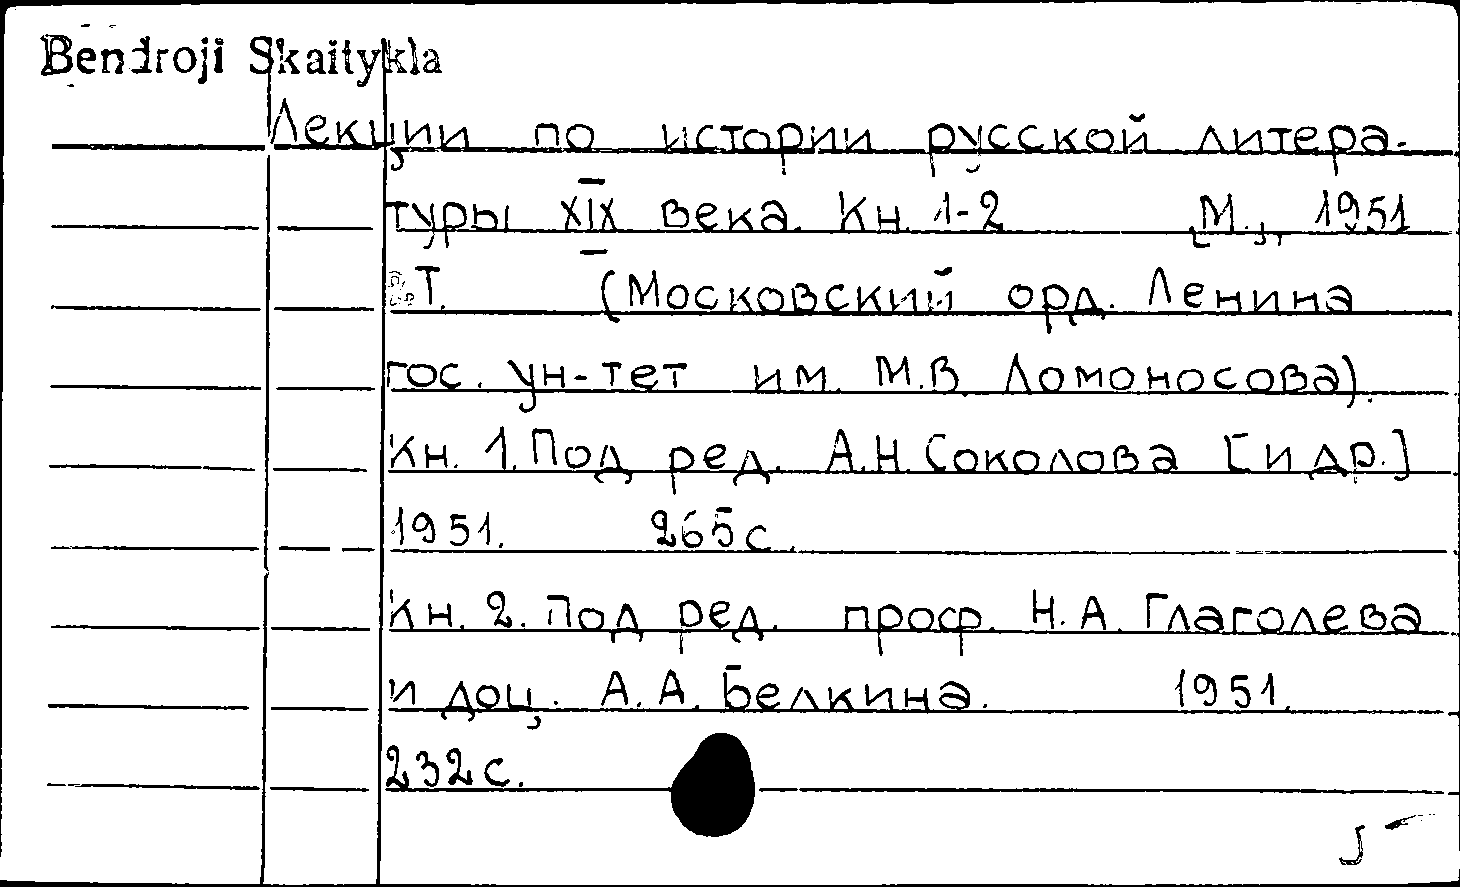 Bendroji Skaitykla
Лекции по истории русской литера-
туры XIX века. Кн. 1-2 М., 1951
Т. (Московский орд. Ленина
гос. ун-тет им. М.В. Ломоносова).
Кн. 1. Под ред. А.Н. Соколова [и др.]
1951. 265 с.
Кн. 2. Под ред. проф. Н.А. Глаголева
и доц. А.А. Белкина. 1951.
232 с.